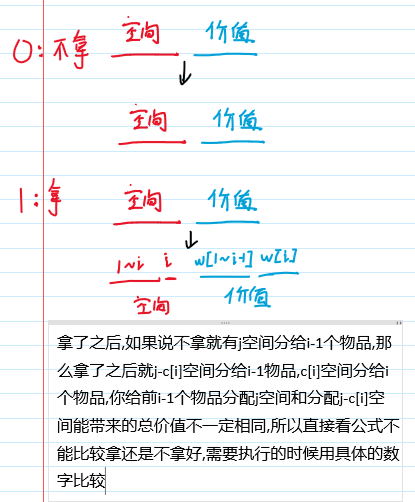 0:不拿 空间 价值
空间 价值
1:拿 空间 价值
1~i i w[1~i-1] w[i]
空间 价值
拿了之后,如果说不拿就有j空间分给i-1个物品,那
么拿了之后就j-c[i]空间分给i-1物品,c[i]空间分给i
个物品,你给前i-1个物品分配j空间和分配j-c[i]空
间能带来的总价值不一定相同,所以直接看公式不
能比较拿还是不拿好,需要执行的时候用具体的数
字比较